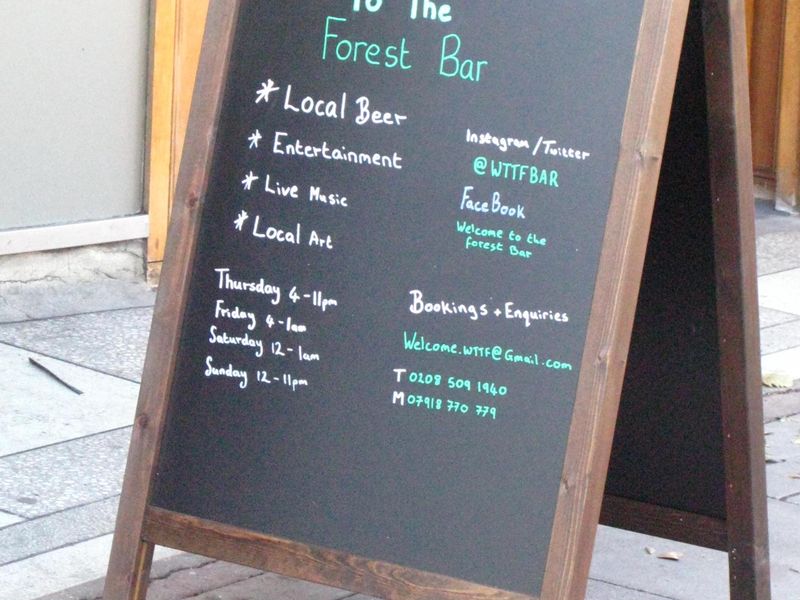 To The
Forest Bar
* Local Beer
* Entertainment
* Live Music
* Local Art
Instagram / Twitter
@WTTFBAR
FaceBook
Welcome to the
Forest Bar
Thursday 4 - 11pm
Friday 4 - 1am
Saturday 12 - 1am
Sunday 12 - 11pm
Bookings + Enquiries
Welcome.WTTF@Gmail.com
T 0208 509 1940
M 07918 770 779